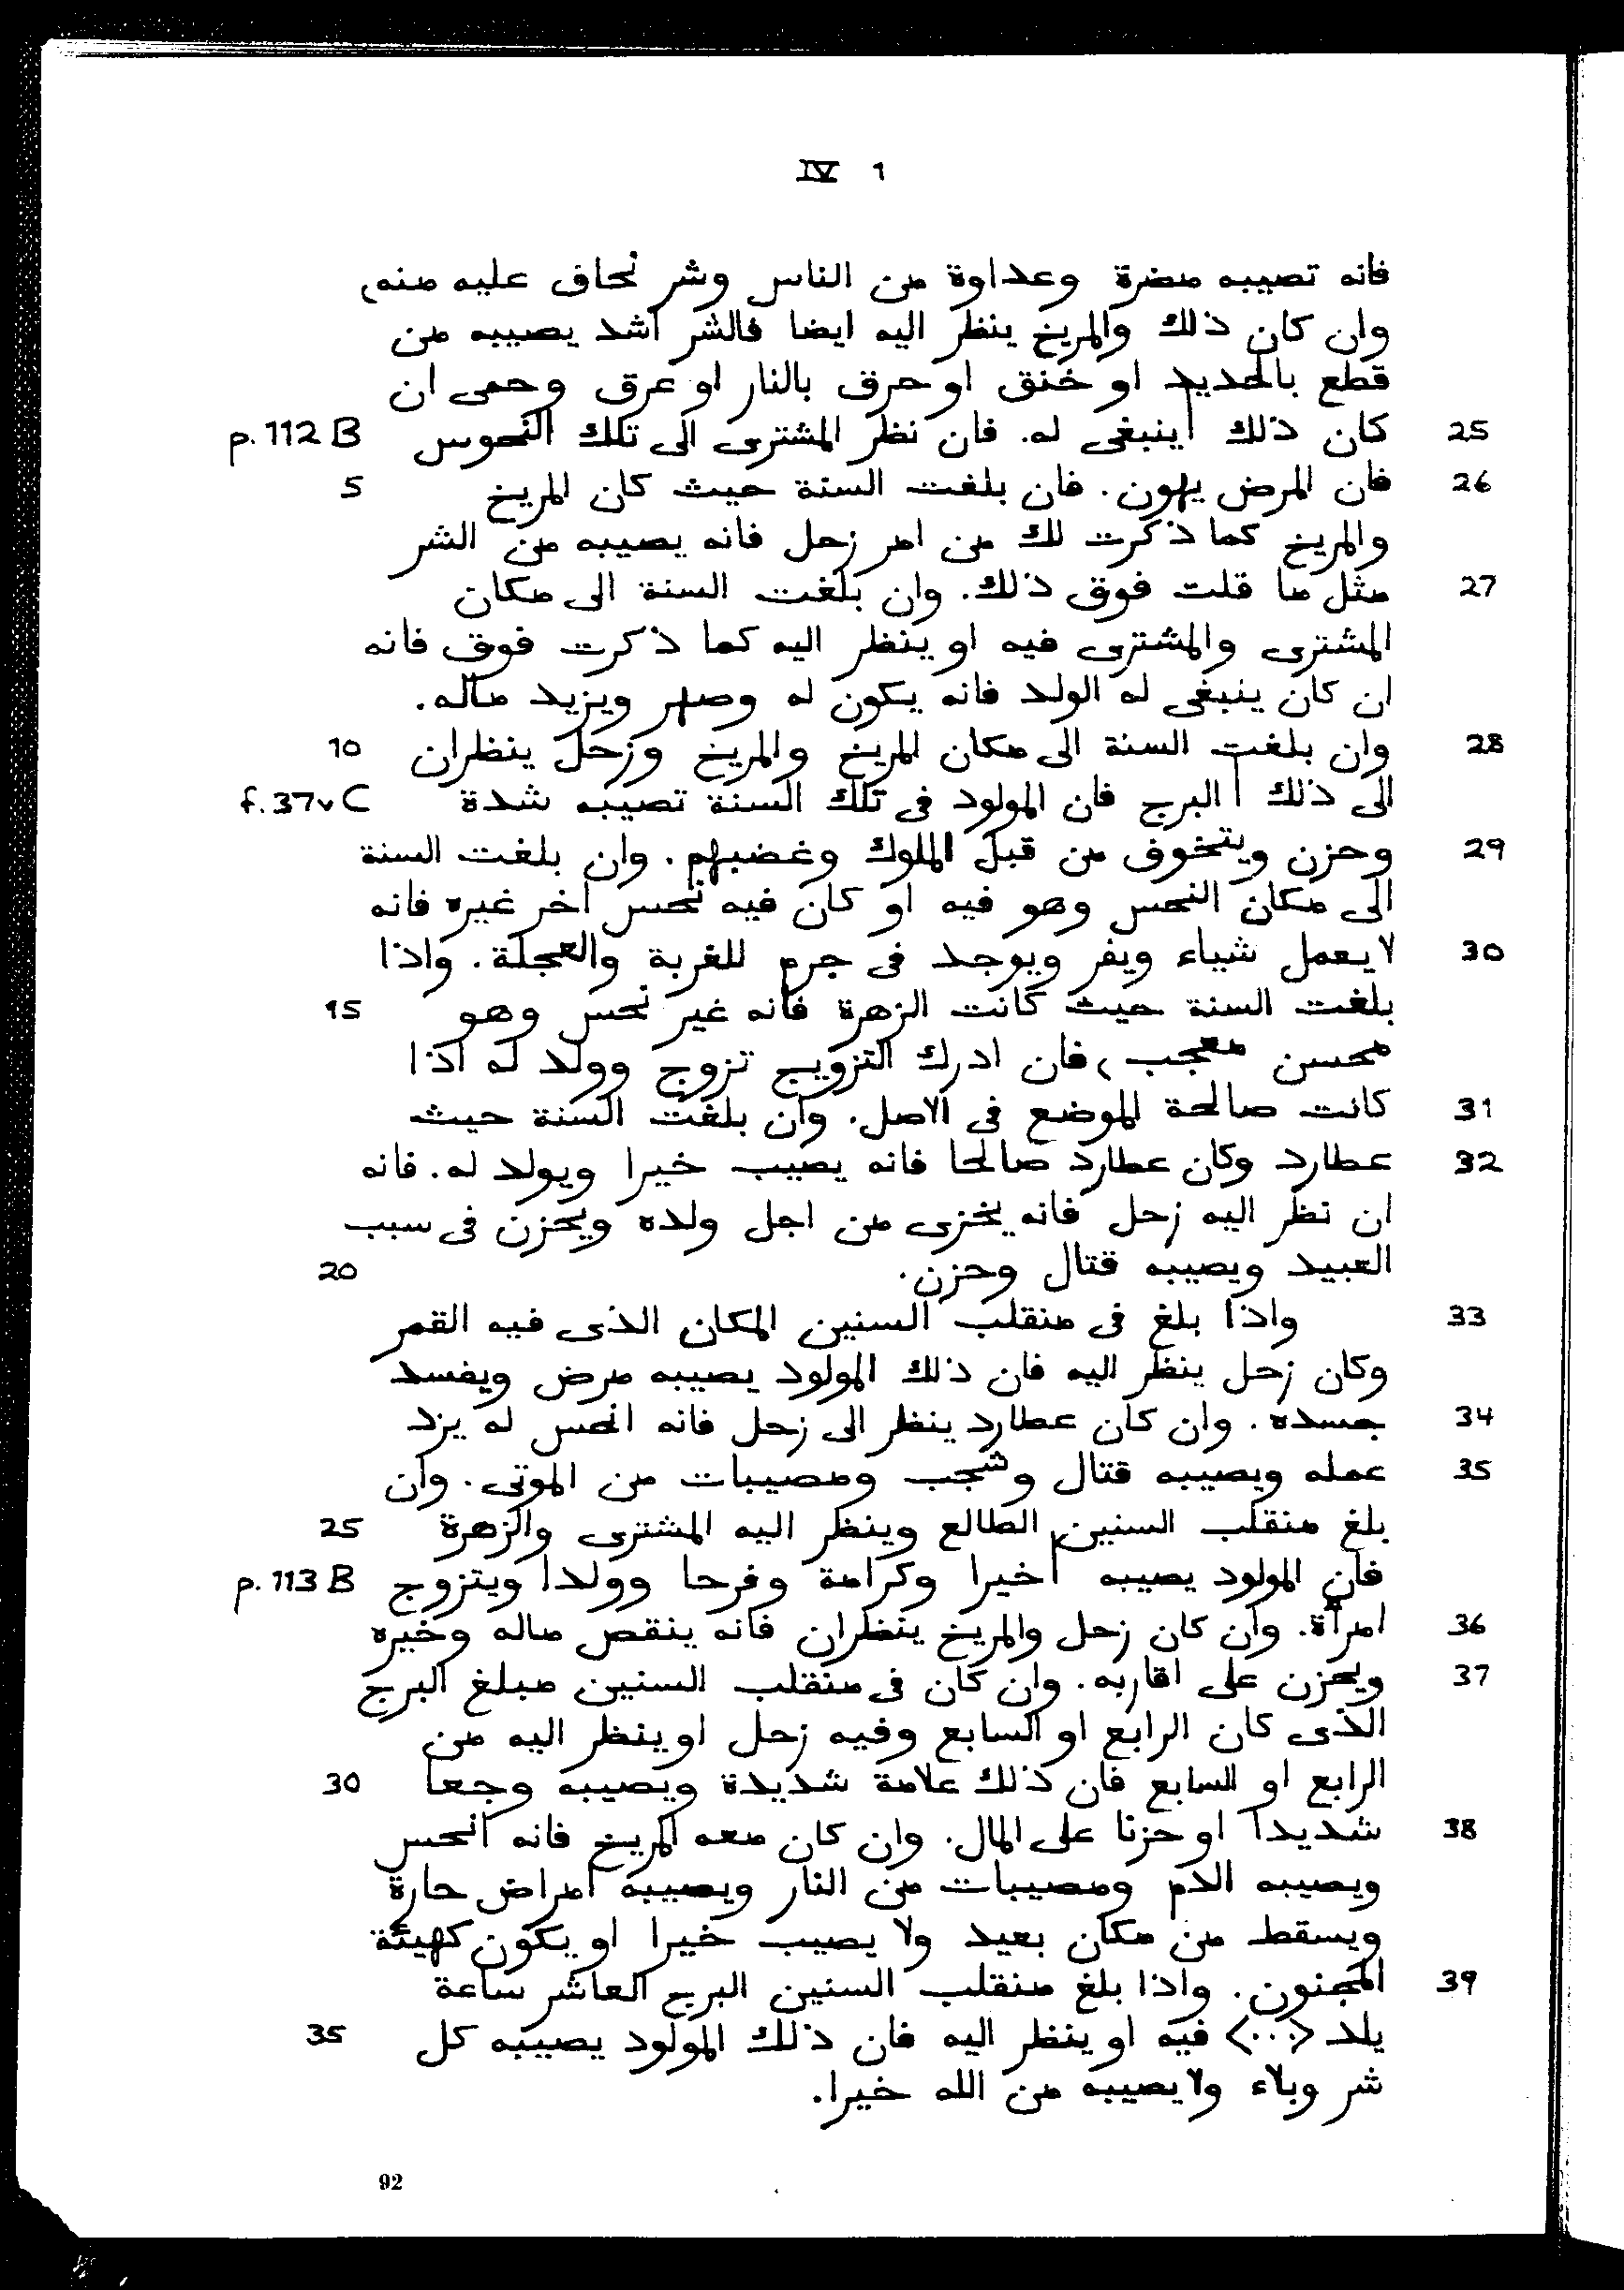 IV 1
فانه تصيبه مضرة وعداوة من الناس وشر نحاف عليه منه،
وان كان ذلك والمريخ ينظر اليه ايضا فالشر اشد يصيبه من
قطع بالحديد او خنق او حرق بالنار او عرق وحمى ان
25 كان ذلك | ينبغى له. فان نظر المشترى الى تلك النحوس p. 112 B
26 فان المرض يهون. فان بلغت السنة حيث كان المريخ 5
والمريخ كما ذكرت لك من امر زحل فانه يصيبه من الشر
27 مثل ما قلت فوق ذلك. وان بلغت السنة الى مكان
المشترى والمشترى فيه او ينظر اليه كما ذكرت فوق فانه
ان كان ينبغى له الولد فانه يكون له وصهر ويزيد ماله.
28 وان بلغت السنة الى مكان المريخ والمريخ وزحل ينظران 10
الى ذلك | البرج فان المولود فى تلك السنة تصيبه شدة f. 37v C
29 وحزن ويتخوف من قبل الملوك وغضبهم. وان بلغت السنة
الى مكان النحس وهو فيه او كان فيه نحس اخر غيره فانه
30 لا يعمل شياء ويفر ويوجد فى جرم للغربة والعجلة. واذا
بلغت السنة حيث كانت الزهرة فانه غير نحس وهو 15
محسن معجب، فان ادرك التزويج تزوج وولد له اذا
31 كانت صالحة الموضع فى الاصل. وان بلغت السنة حيث
32 عطارد وكان عطارد صالحا فانه يصيب خيرا ويولد له. فانه
ان نظر اليه زحل فانه يخزى من اجل ولده ويحزن فى سبب
العبيد ويصيبه قتال وحزن. 20
33 واذا بلغ فى منقلب السنين المكان الذى فيه القمر
وكان زحل ينظر اليه فان ذلك المولود يصيبه مرض ويفسد
34 جسده. وان كان عطارد ينظر الى زحل فانه انحس له يزد
35 عمله ويصيبه قتال وشجب ومصيبات من الموتى. وان
بلغ منقلب السنين الطالع وينظر اليه المشترى والزهرة 25
فان المولود يصيبه | خيرا وكرامة وفرحا وولدا ويتزوج p. 113 B
36 امرأة. وان كان زحل والمريخ ينظران فانه ينقص ماله وخيره
37 ويحزن على اقاربه. وان كان فى منقلب السنين مبلغ البرج
الذى كان الرابع او السابع وفيه زحل او ينظر اليه من
الرابع او السابع فان ذلك علامة شديدة ويصيبه وجعا 30
38 شديدا او حزنا على المال. وان كان معه المريخ فانه انحس
ويصيبه الدم ومصيبات من النار ويصيبه امراض حارة
ويسقط من مكان بعيد ولا يصيب خيرا او يكون كهيئة
39 المجنون. واذا بلغ منقلب السنين البرج العاشر ساعة
يلد <...> فيه او ينظر اليه فان ذلك المولود يصيبه كل 35
شر وبلاء ولا يصيبه من الله خيرا.
92